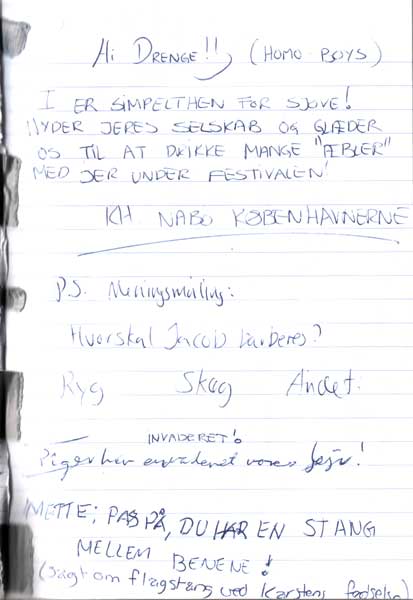 Hi DRENGE!! (HOMO BOYS)
I ER SIMPELTHEN FOR SJOVE!
NYDER JERES SELSKAB OG GLÆDER
OS TIL AT DRIKKE MANGE "ÆBLER"
MED JER UNDER FESTIVALEN!
KH. NABO KØBENHAVNERNE
P.S. Meningsmåling:
Hvor skal Jacob barberes?
Ryg Skæg Andet.
INVADERET!
Piger har envaderet vores lejr!
METTE; PAS PÅ, DU HAR EN STANG
MELLEM BENENE!
(sagt om flagstang ved Karstens fødselsd)